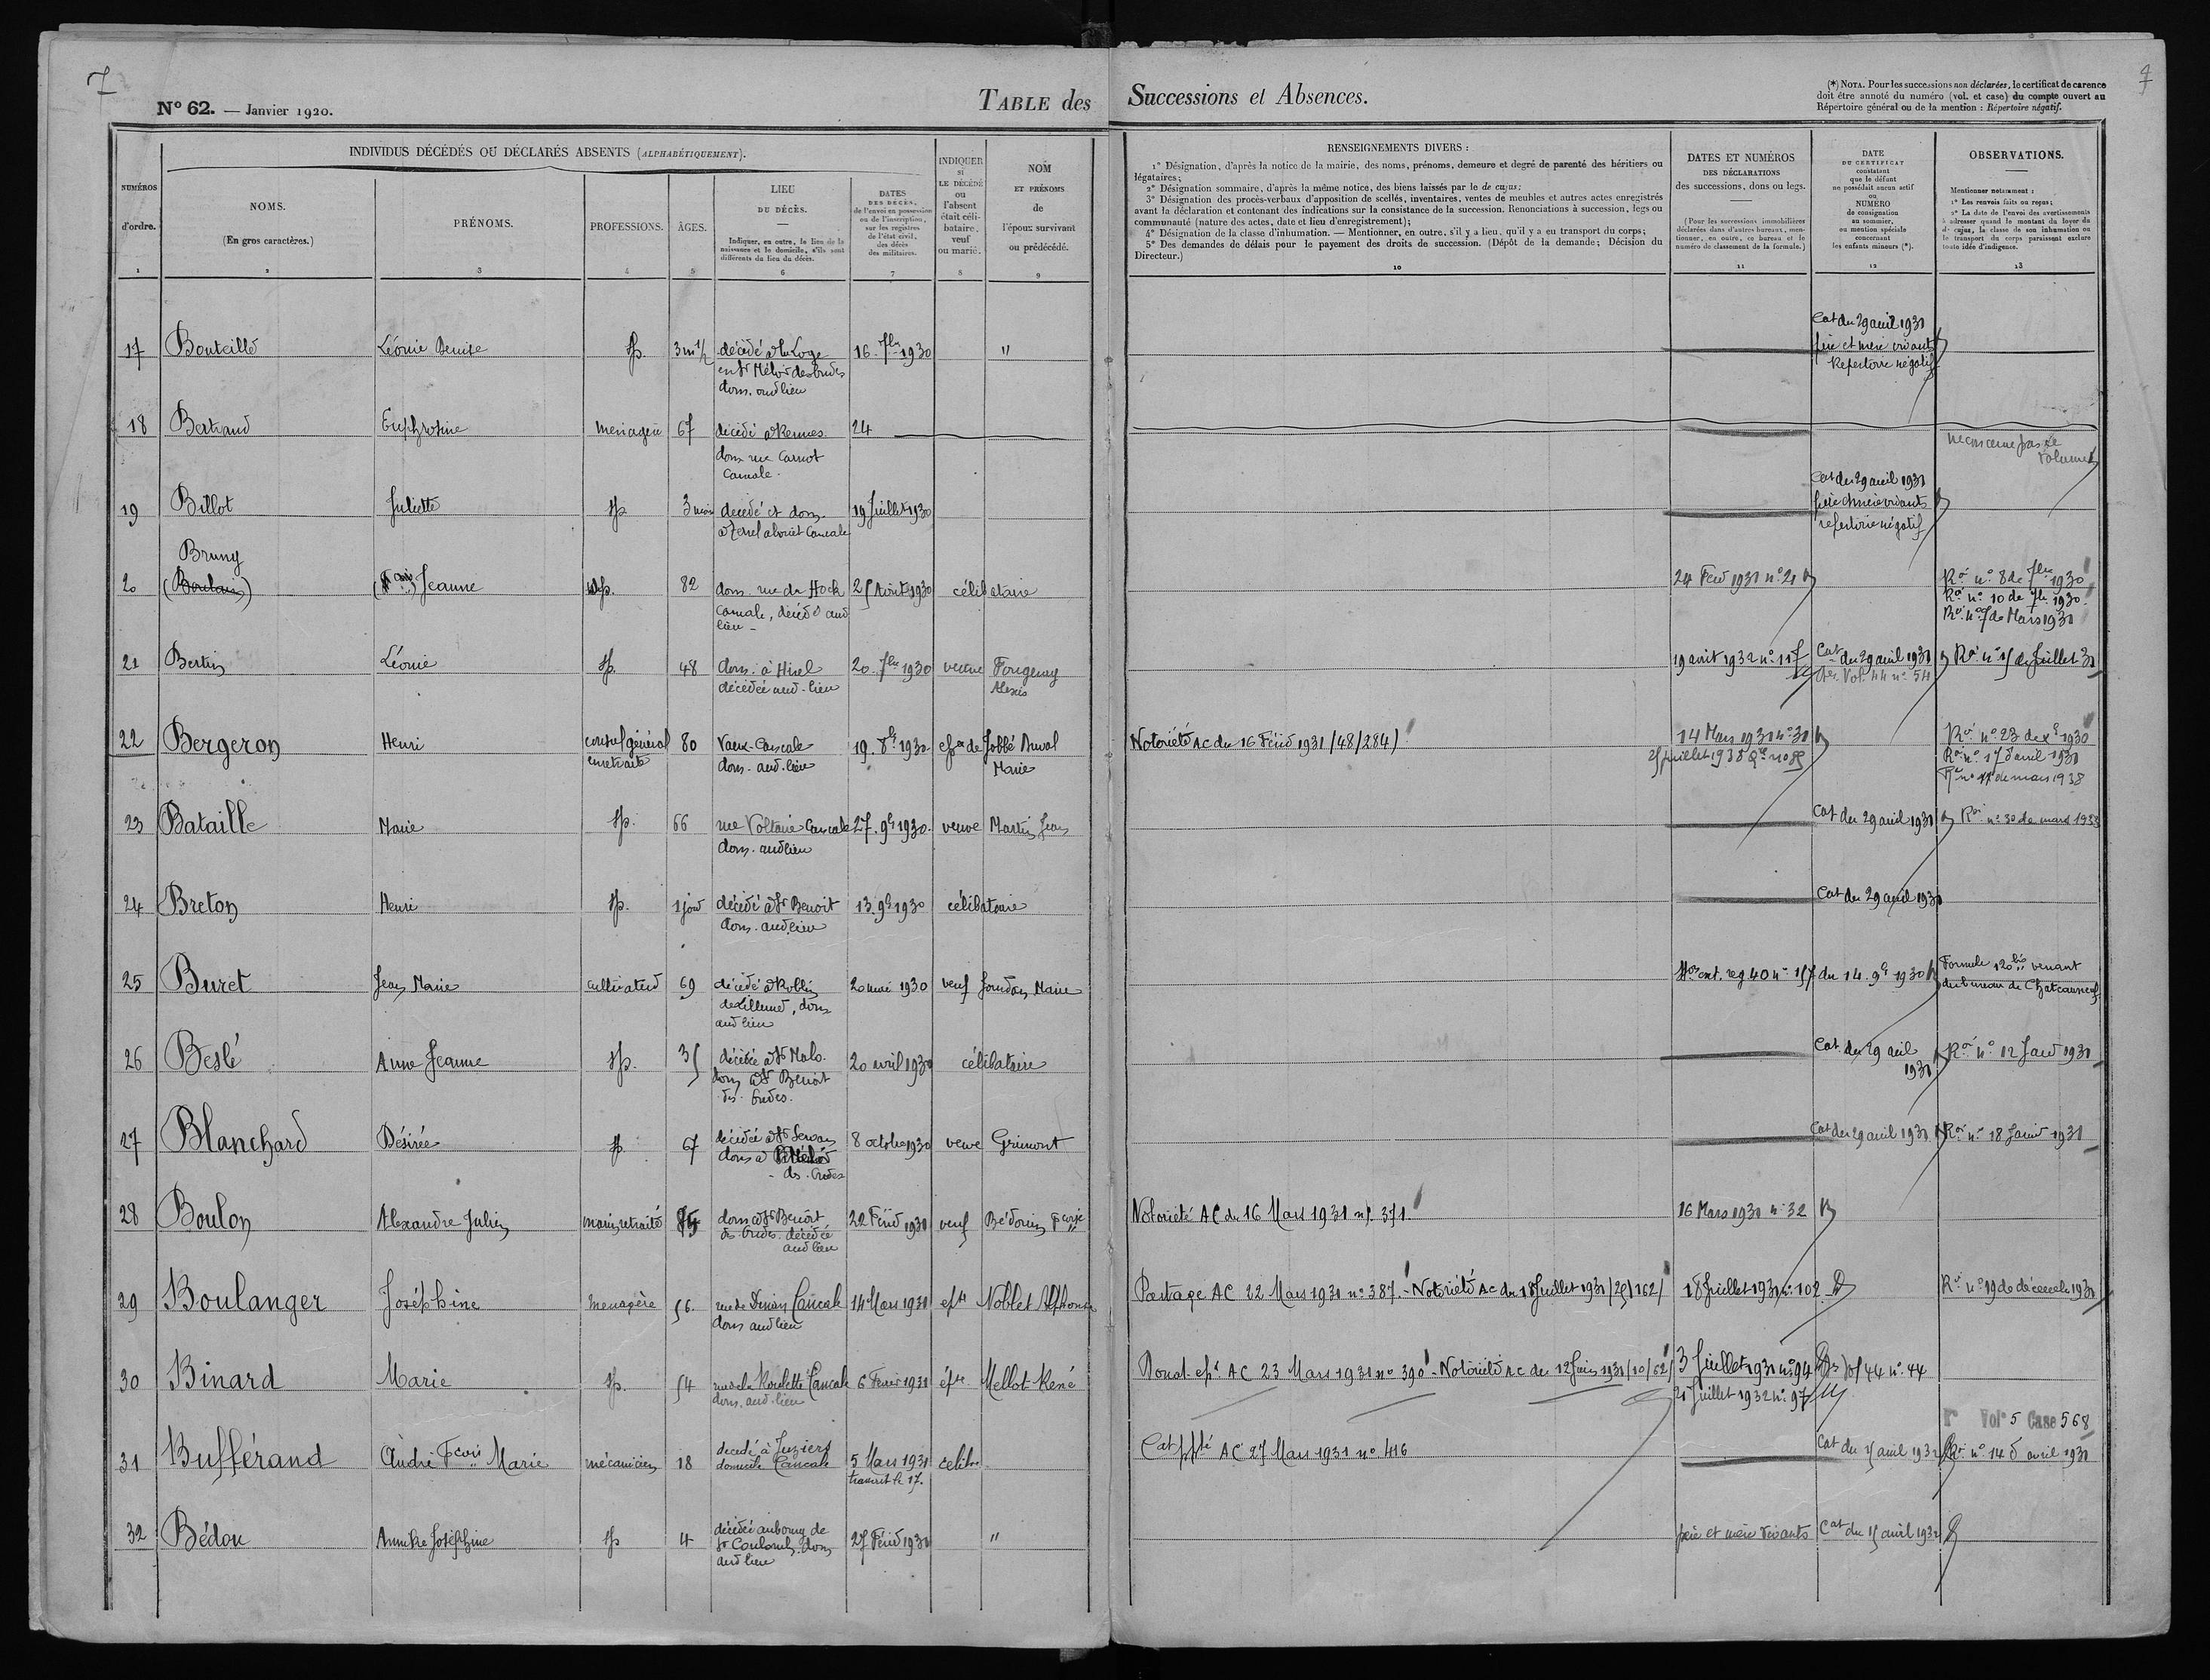 7
4
N° 62. — Janvier 1920.
TABLE des Successions et Absences.
(*) NOTA. Pour les successions non déclarées, le certificat de carence
doit être annoté du numéro (vol. et case) du compte ouvert au
Répertoire général ou de la mention : Répertoire négatif.
NUMÉROS d'ordre.
1
INDIVIDUS DÉCÉDÉS OU DÉCLARÉS ABSENTS (ALPHABÉTIQUEMENT).
NOMS.
(En gros caractères.)
2
PRÉNOMS.
3
PROFESSIONS.
4
ÂGES.
5
LIEU
DU DÉCÈS.
Indiquer, en outre, le lieu de la
naissance et le domicile, s'ils sont
différents du lieu du décès.
6
DATES
DES DÉCÈS,
de l'envoi en possession
ou de l'inscription,
sur les registres
de l'état civil,
des décès
des militaires.
7
INDIQUER
si
LE DÉCÉDÉ
ou
l'absent
était céli-
bataire,
veuf
ou marié.
8
NOM
ET PRÉNOMS
de
l'époux survivant
ou prédécédé.
9
RENSEIGNEMENTS DIVERS :
1° Désignation, d'après la notice de la mairie, des noms, prénoms, demeure et degré de parenté des héritiers ou
légataires;
2° Désignation sommaire, d'après la même notice, des biens laissés par le de cujus;
3° Désignation des procès-verbaux d'apposition de scellés, inventaires, ventes de meubles et autres actes enregistrés
avant la déclaration et contenant des indications sur la consistance de la succession. Renonciations à succession, legs ou
communauté (nature des actes, date et lieu d'enregistrement);
4° Désignation de la classe d'inhumation. — Mentionner, en outre, s'il y a lieu, qu'il y a eu transport du corps;
5° Des demandes de délais pour le payement des droits de succession. (Dépôt de la demande; Décision du
Directeur.)
10
DATES ET NUMÉROS
DES DÉCLARATIONS
des successions, dons ou legs.
(Pour les successions immobilières
déclarées dans d'autres bureaux, men-
tionner, en outre, ce bureau et le
numéro de classement de la formule.)
11
DATE
DU CERTIFICAT
constatant
que le défunt
ne possédait aucun actif
ou
NUMÉRO
de consignation
au sommier,
ou mention spéciale
concernant
les enfants mineurs (*).
12
OBSERVATIONS.
Mentionner notamment :
1° Les renvois faits ou reçus;
2° La date de l'envoi des avertissements
à adresser quand le montant du loyer du
de cujus, la classe de son inhumation ou
le transport du corps paraissent exclure
toute idée d'indigence.
13
17 Bouteillé Léonie Denise sp. 3 m 1/2 décédé à la Loge 16. 7bre 1930 "
en St Méloir des Ondes
dom. aud lieu
Cat du 29 avril 1931
père et mère vivants
Répertoire négatif
18 Bertrand Euphrosine ménagère 67 décédé à Rennes 24
dom rue Carnot
Cancale
ne concerne pas ce
volume
19 Billot Juliette sp 3 mois décédé et dom. 19 Juillet 1930
Cancale
Cat du 29 avril 1931
père et mère vivants
répertoire négatif
Bruny
20 (Boulain) (Fcoise) Jeanne sp. 82 dom. rue du Hock 25 Août 1930 célibataire
Cancale, décédé aud
lieu -
24 Fév 1931 n° 21
Roi n° 8 de 7bre 1930
Roi n° 10 de 7bre 1930
Roi n° 7 de Mars 1930
21 Bertin Léonie sp. 48 dom. à Hirel 20. 7bre 1930 veuve Fougeray
décédée aud. lieu Alexis
19 avril 1932 n° 117 Cat du 29 avril 1931 Roi n° 15 de Juillet 30
Vol. 44 n° 54
22 Bergeron Henri consul général 80 Vaux-Cancale 19. 8bre 1930 epx de Jobbé Duval
en retraite dom. aud. lieu Marie
Notoriété AC du 16 Février 1931 (48/284)
14 Mars 1931 n° 31
Roi n° 23 de Xbre 1930
Roi n° 17 d'avril 1931
Roi n° 17 de mars 1938
23 Bataille Marie sp. 66 rue Voltaire Cancale 27. 9bre 1930. veuve Martin Jean
dom. aud lieu
Cat du 29 avril 1931 Roi n° 30 de mars 1933
24 Breton Henri sp. 1 jour décédé à St Benoit 13. 9bre 1930 célibataire
dom. aud. lieu
Cat du 29 avril 1931
25 Buret Jean Marie cultivateur 69 décédé à Roblin 20 mai 1930 veuf Jourdan Marie
de Lillemer, dom
aud lieu
ent. reg 40 n° 157 du 14. 9bre 1930
Formule 120 bis venant
du bureau de Chateauneuf
26 Beslé Anne Jeanne sp. 35 décédée à St Malo. 20 avril 1930 célibataire
dom à St Benoit
des Ondes.
Cat du 29 avril
1931
Roi n° 12 Janv 1931
27 Blanchard Désirée sp. 67 décédée à St Servan 8 octobre 1930 veuve Grimont
dom à St Méloir
des Ondes
Cat du 29 avril 1931 Roi n° 18 Janvr 1931
28 Boulon Alexandre Julien marin retraité dom à St Benoit 22 Févr 1931 veuf Bédouin Fcoise
des Ondes. décédé
aud lieu
Notoriété AC du 16 Mars 1931 n° 371. 16 Mars 1931 n° 32
29 Boulanger Joséphine ménagère 56. rue de Dinan Cancale 14 Mars 1931 epse Noblet Alphonse
dom aud lieu
Partage AC 22 Mars 1931 n° 387. - Notoriété AC du 18 Juillet 1931 (25/162) 18 Juillet 1931 n° 102
Roi n° 19 de décembre 1931
30 Binard Marie sp. 54 rue de la Roulette Cancale 6 Février 1931 épse Mellot René
dom. aud. lieu
Donat. eps AC 23 Mars 1931 n° 390 - Notoriété AC du 12 Juin 1931 (10/62) 3 Juillet 1931 n° 94 Vol 44 n° 44
21 Juillet 1932 n° 97
Vol° 5 Case 568
31 Bufférand André Fcois Marie mécanicien 18 décédé à Juziers 5 Mars 1931 célibre
domicile Cancale transcrit le 17.
Cat ppté AC 27 Mars 1931 n° 416
Cat du 15 avril 1932 Roi n° 14 d'avril 1931
32 Bédou Annike Joséphine sp 4 décédée au bourg de 27 Févr 1931 "
St Coulomb, dom
aud lieu
père et mère vivants Cat du 15 avril 1932